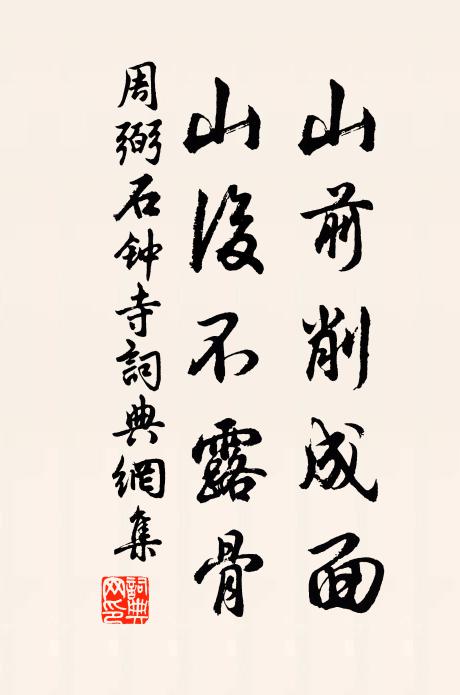 山前削成面
山後不露骨
周弼石钟寺詞典網集
詞典网印